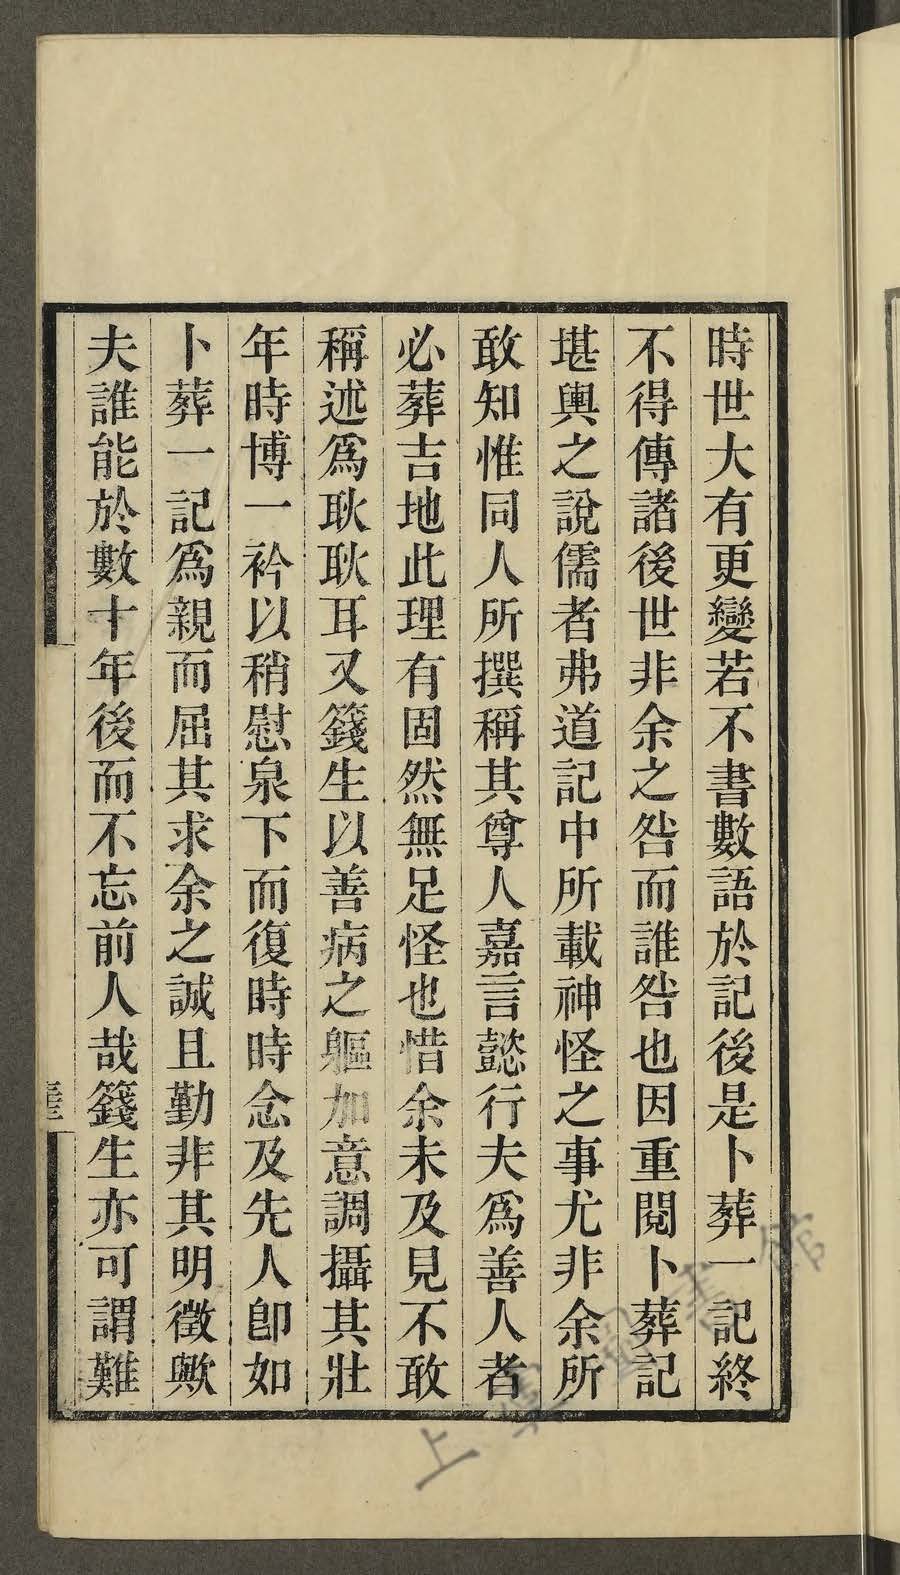 時世大有更變若不書數語於記後是卜葬一記終
不得傳諸後世非余之咎而誰咎也因重閱卜葬記
堪輿之說儒者弗道記中所載神怪之事尤非余所
敢知惟同人所撰稱其尊人嘉言懿行夫爲善人者
必葬吉地此理有固然無足怪也惜余未及見不敢
稱述爲耿耿耳又籛生以善病之軀加意調攝其壯
年時博一衿以稍慰泉下而復時時念及先人卽如
卜葬一記爲親而屈其求余之誠且勤非其明徵歟
夫誰能於數十年後而不忘前人哉籛生亦可謂難
上虞圖書館